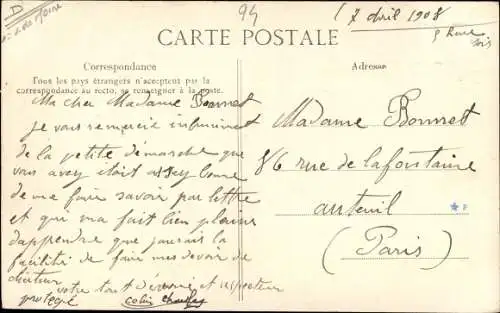 D
94
7 avril 1908
CARTE POSTALE
Correspondance
Tous les pays étrangers n'acceptent par la
correspondance au recto, se renseigner à la poste.
Adresse
Ma cher Madame Bonnet
je vous remercie infiniment
de la petite démarche que
vous avey était assey bonne
de me faire savoir par lettre
et qui ma fait bien plaisir
d'apprendre que jaurais la
facilité de faire mes devoir de
électeur
votre tout dévoué et respecteur
protégé
Madame Bonnet
86 rue de lafontaine
auteuil
(Paris)